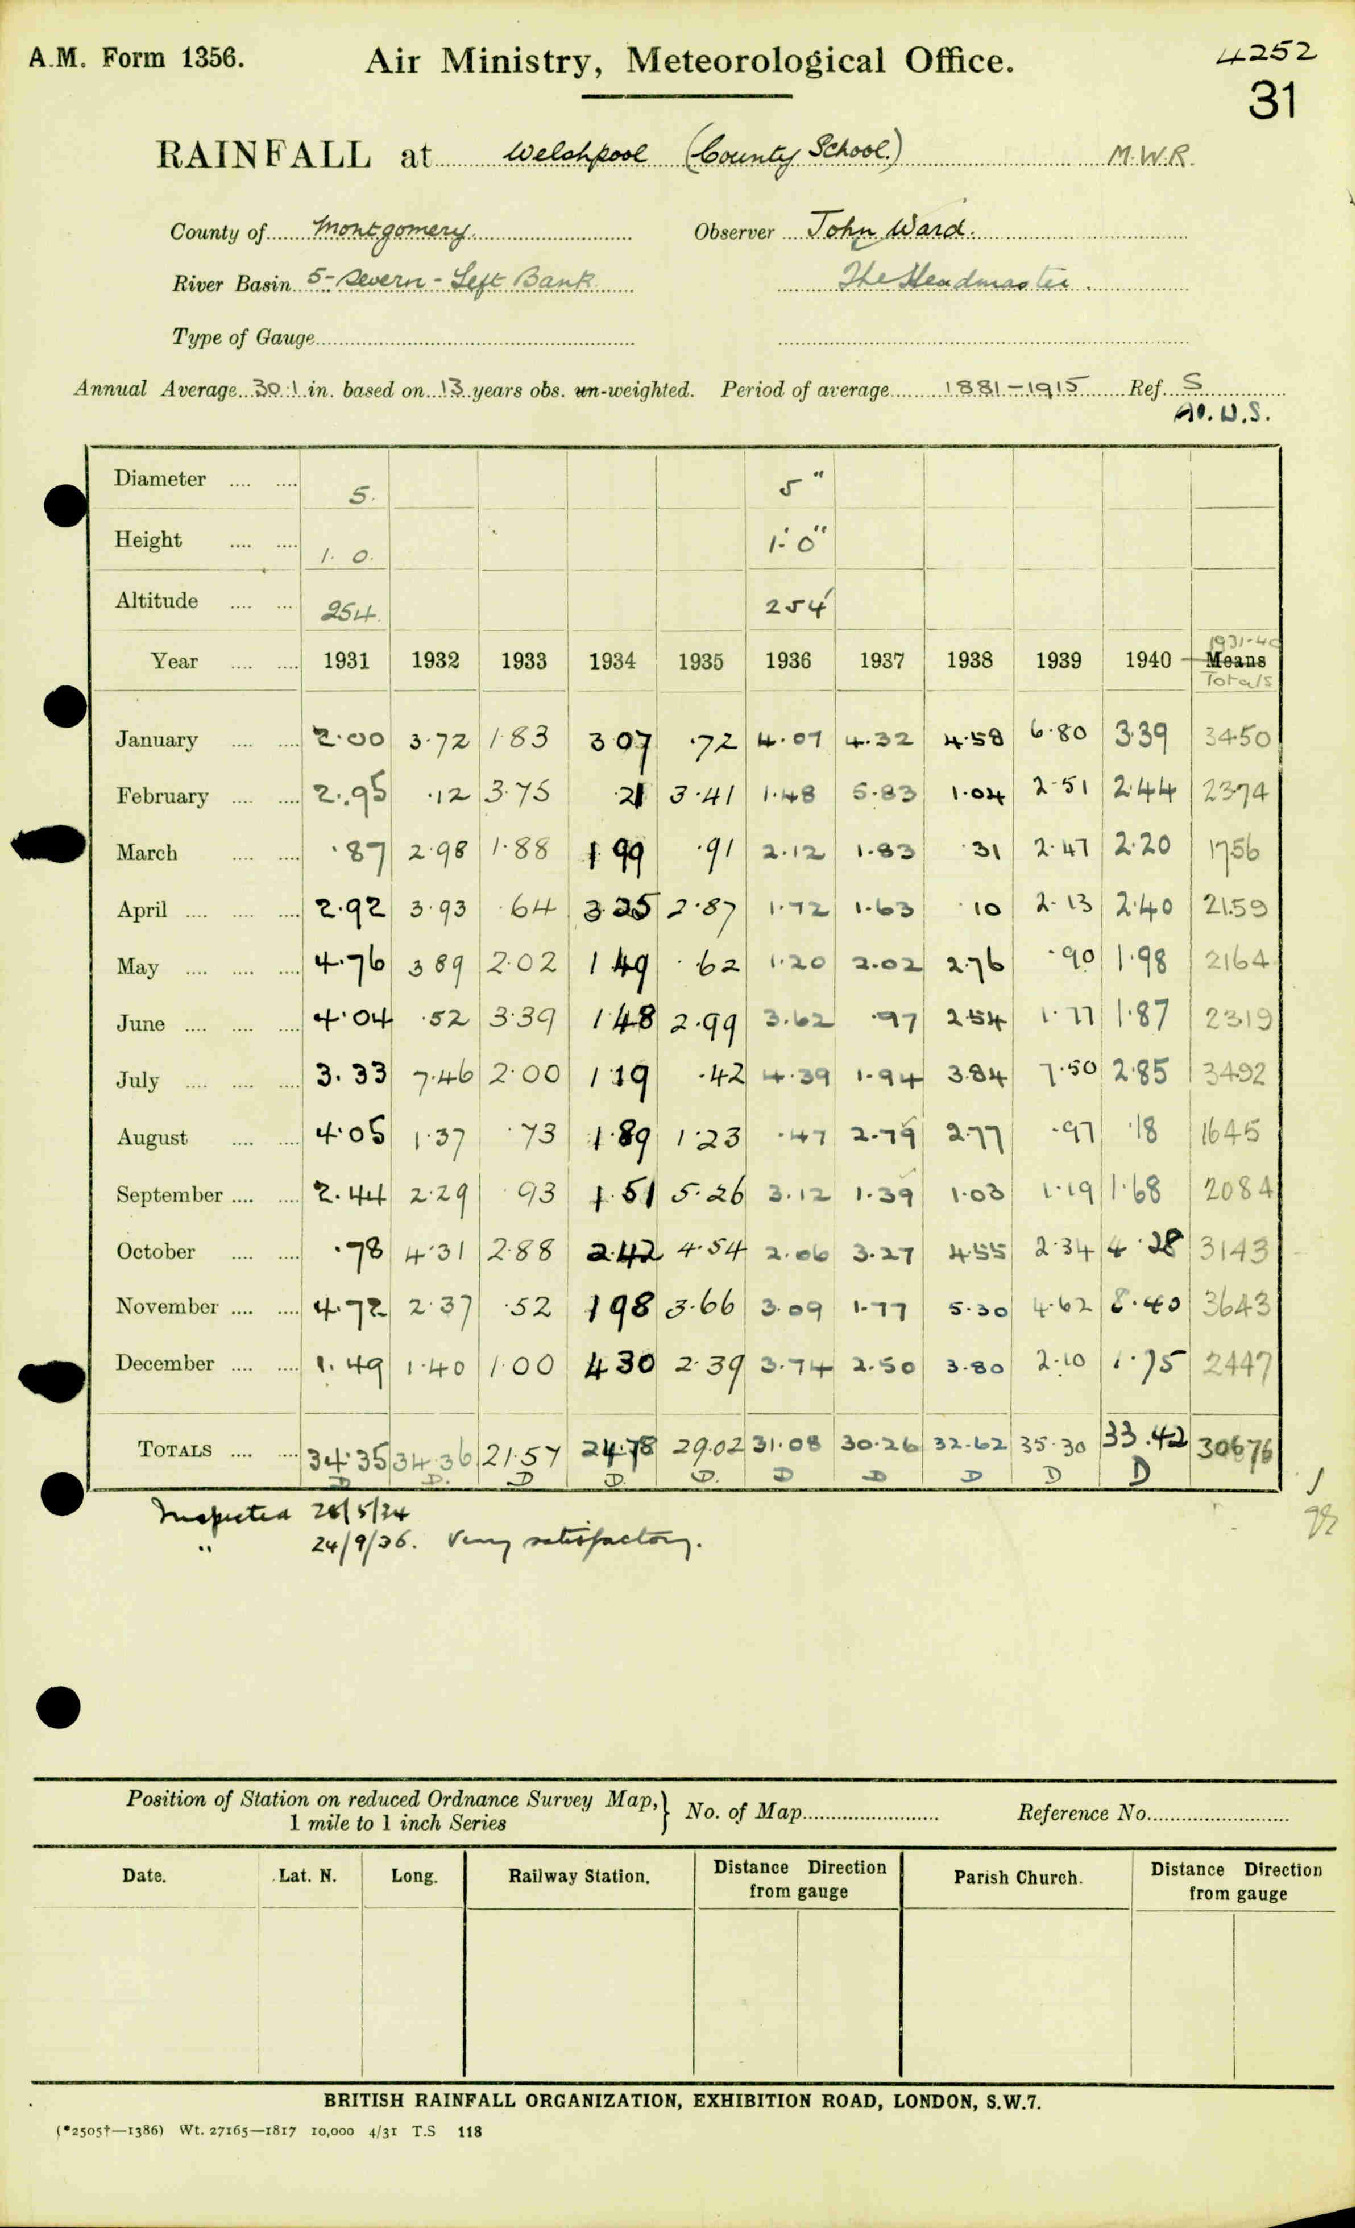 A.M. Form 1356. Air Ministry, Meteorological Office. 4252
31
RAINFALL at Welshpool (County School.) M.W.R.
County of Montgomery. Observer John Ward.
River Basin 5 - Severn - Left Bank The Headmaster.
Type of Gauge
Annual Average 30.1 in. based on 13 years obs. un-weighted. Period of average 1881-1915 Ref. S
Diameter 5. 5"
Height 1. 0. 1'. 0"
Altitude 254. 254'
1931-40
Year 1931 1932 1933 1934 1935 1936 1937 1938 1939 1940 Means
Totals
January 2.00 3.72 1.83 3 07 .72 4.07 4.32 4.58 6.80 3.39 3450
February 2.95 .12 3.75 .21 3.41 1.48 5.83 1.04 2.51 2.44 2374
March .87 2.98 1.88 1 99 .91 2.12 1.83 .31 2.47 2.20 1756
April 2.92 3.93 .64 3 25 2.87 1.72 1.63 .10 2.13 2.40 21.59
May 4.76 3 89 2.02 1 49 .62 1.20 2.02 2.76 .90 1.98 2164
June 4.04 .52 3.39 1 48 2.99 3.62 .97 2.54 1.77 1.87 2319
July 3.33 7.46 2.00 1 19 .42 4.39 1.94 3.84 7.50 2.85 3492
August 4.05 1.37 .73 1.89 1.23 .47 2.79 2.77 .97 .18 1645
September 2.44 2.29 .93 1.51 5.26 3.12 1.39 1.03 1.19 1.68 2084
October .78 4.31 2.88 2.42 4.54 2.06 3.27 4.55 2.34 4.28 3143
November 4.72 2.37 .52 1 98 3.66 3.09 1.77 5.30 4.62 8.40 3643
December 1.49 1.40 1.00 4 30 2.39 3.74 2.50 3.80 2.10 1.75 2447
TOTALS 34.35 34.36 21.57 24.78 29.02 31.08 30.26 32.62 35.30 33.42 30676
D D. D D. D. D D D D D
Inspected 28/5/34
" 24/9/36. Very satisfactory.
Position of Station on reduced Ordnance Survey Map, } No. of Map Reference No.
1 mile to 1 inch Series
Date. Lat. N. Long. Railway Station. Distance Direction from gauge Parish Church. Distance Direction from gauge
BRITISH RAINFALL ORGANIZATION, EXHIBITION ROAD, LONDON, S.W.7.
(*2505†—1386) Wt. 27165—1817 10,000 4/31 T.S 118